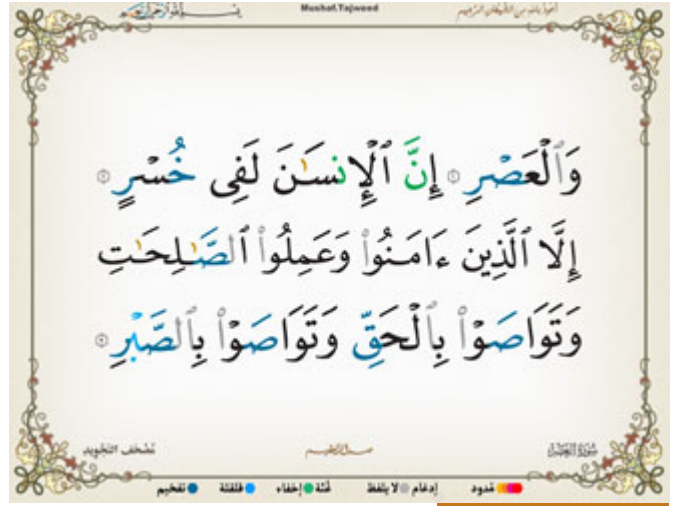 أعوذ بالله من الشيطان الرجيم
Mushaf.Tajweed
بسم الله الرحمن الرحيم
وَٱلْعَصْرِ ١ إِنَّ ٱلْإِنسَـٰنَ لَفِى خُسْرٍ ٢
إِلَّا ٱلَّذِينَ ءَامَنُوا۟ وَعَمِلُوا۟ ٱلصَّـٰلِحَـٰتِ
وَتَوَاصَوْا۟ بِٱلْحَقِّ وَتَوَاصَوْا۟ بِٱلصَّبْرِ ٣
سُورَةُ العَصْرِ
صدق الله العظيم
مُصْحَف التجويد
مُدود إدغام لا يلفظ غُنّة إخفاء قلقلة تفخيم